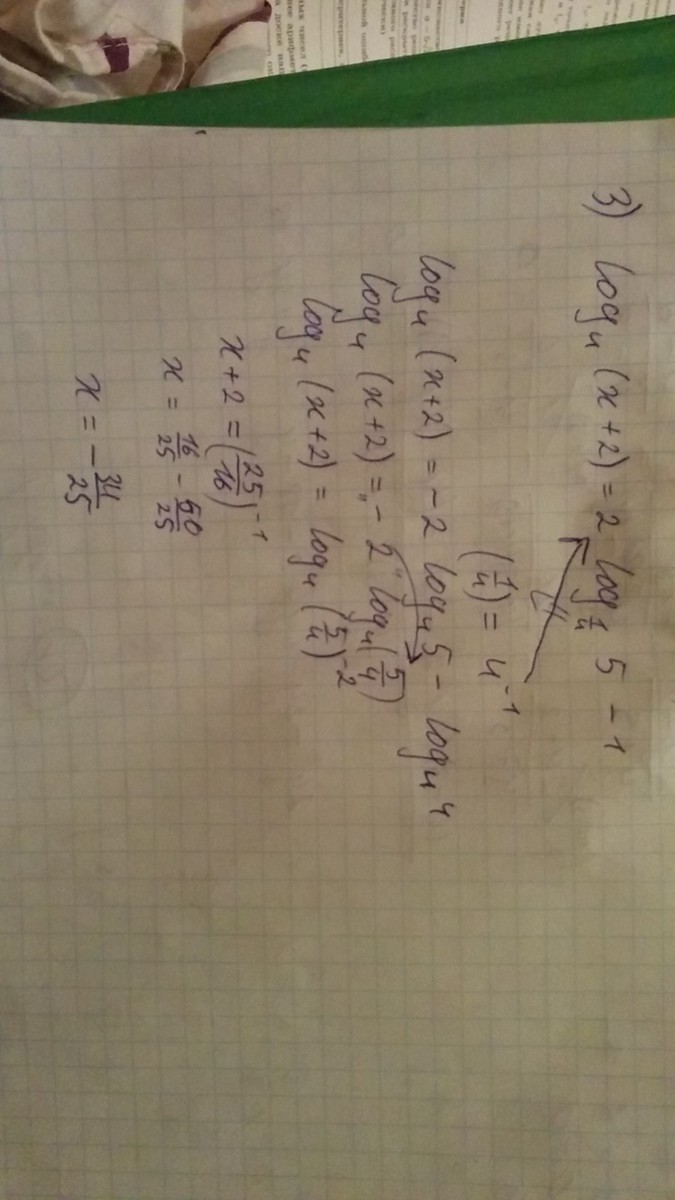 3) log₄ (x+2) = 2 log_{1/4} 5 - 1
(1/4) = 4⁻¹
log₄ (x+2) = -2 log₄ 5 - log₄ 4
log₄ (x+2) = -2 log₄ (5/4)
log₄ (x+2) = log₄ (5/4)⁻²
x+2 = (25/16)⁻¹
x = 16/25 - 50/25
x = -34/25